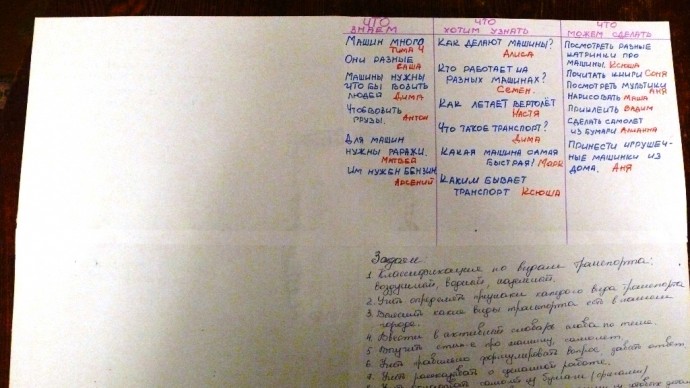 ЧТО ЗНАЕМ
МАШИН МНОГО
ТИМА Ч
ОНИ РАЗНЫЕ
САША
МАШИНЫ НУЖНЫ
ЧТО БЫ ВОЗИТЬ
ЛЮДЕЙ ДИМА
ЧТОБ ВОЗИТЬ
ГРУЗЫ. АНТОН
ДЛЯ МАШИН
НУЖНЫ ГАРАЖИ.
МАТВЕЙ
ИМ НУЖЕН БЕНЗИН
АРСЕНИЙ
ЧТО
ХОТИМ УЗНАТЬ
КАК ДЕЛАЮТ МАШИНЫ?
АЛИСА
КТО РАБОТАЕТ НА
РАЗНЫХ МАШИНАХ?
СЕМЁН.
КАК ЛЕТАЕТ ВЕРТОЛЁТ
НАСТЯ
ЧТО ТАКОЕ ТРАНСПОРТ?
ДИМА
КАКАЯ МАШИНА САМАЯ
БЫСТРАЯ? МАРК
КАКИМ БЫВАЕТ
ТРАНСПОРТ КСЮША
ЧТО
МОЖЕМ СДЕЛАТЬ
ПОСМОТРЕТЬ РАЗНЫЕ
КАРТИНКИ ПРО
МАШИНЫ. КСЮША
ПОЧИТАТЬ КНИГИ СОНЯ
ПОСМОТРЕТЬ МУЛЬТИКИ
АНЯ
НАРИСОВАТЬ МАША
ПРИКЛЕИТЬ ВАДИМ
СДЕЛАТЬ САМОЛЕТ
ИЗ БУМАГИ АРИАННА
ПРИНЕСТИ ИГРУШЕЧ-
НЫЕ МАШИНКИ ИЗ
ДОМА. АНЯ
Задачи:
1. Классификация по видам транспорта:
воздушный, водный, наземный.
2. Учить определять признаки каждого вида транспорта
3. Выяснить какие виды транспорта есть в нашем
городе.
4. Ввести в активный словарь слова по теме.
5. Выучить стих-е про машину, самолет.
6. Учить правильно формулировать вопрос, давать ответ
7. Учить рассказывать о домашней работе.
самолет из бумаги